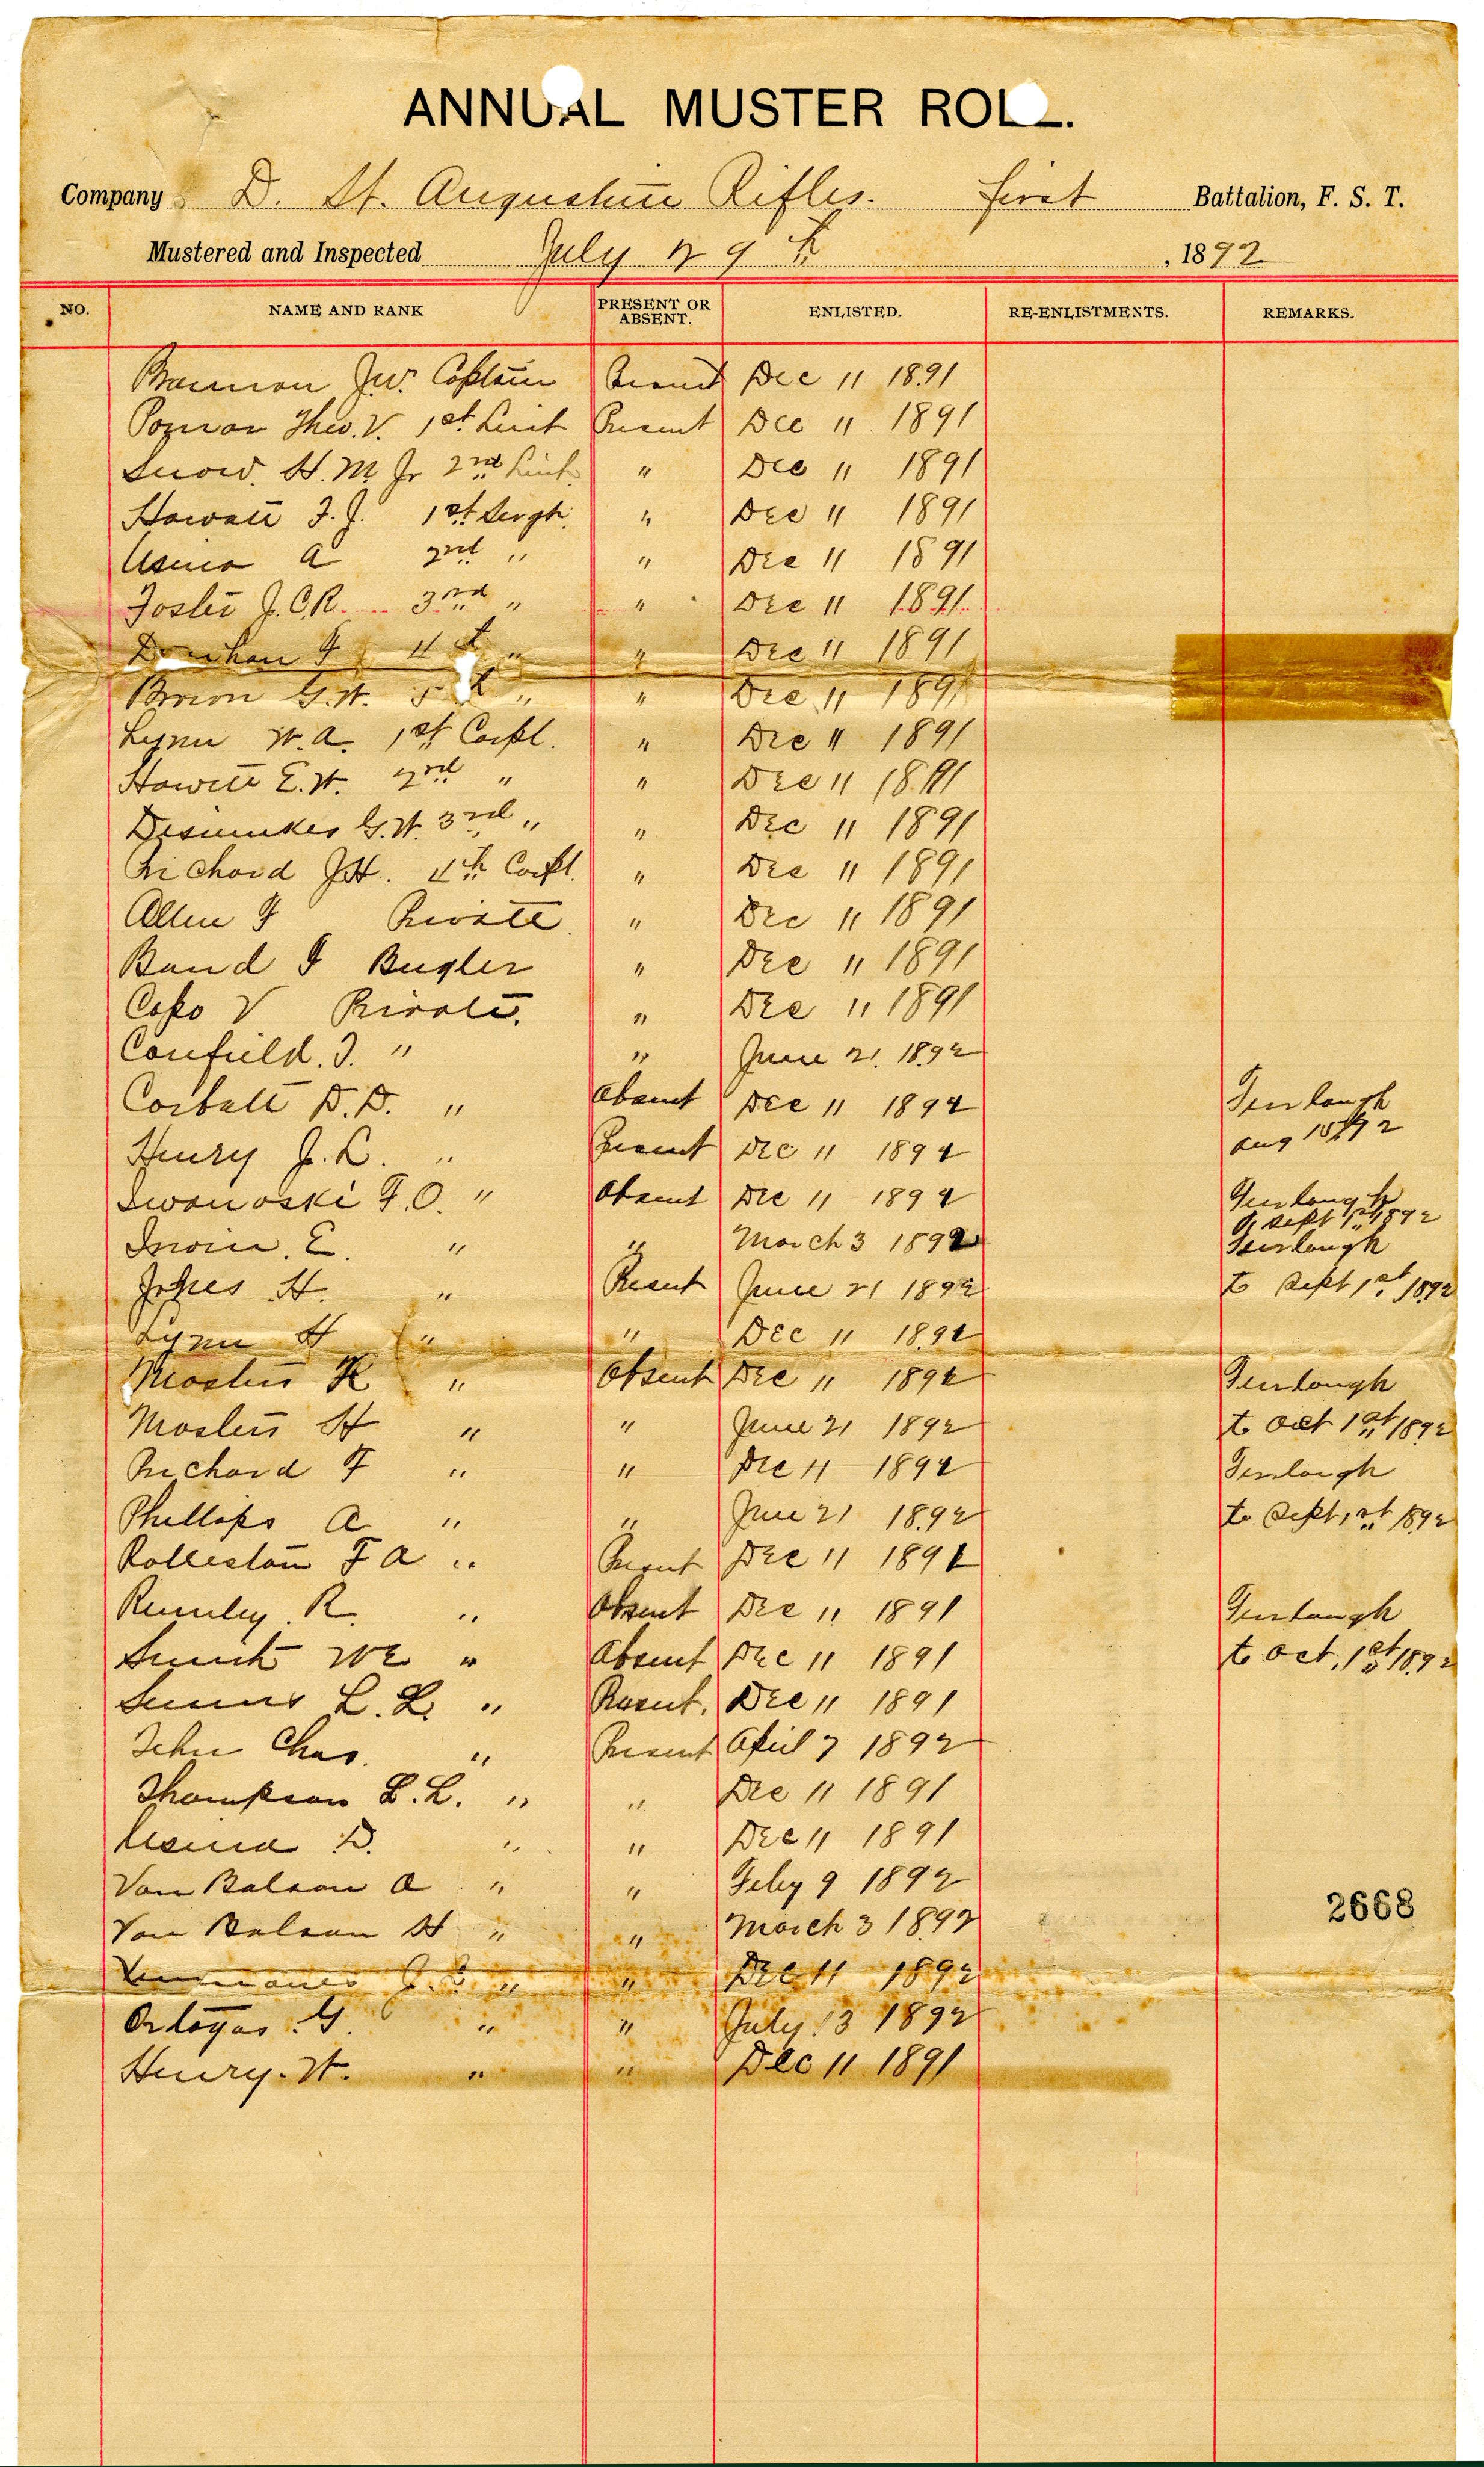 ANNUAL MUSTER ROLL.
Company D. St. Augustine Rifles. first Battalion, F. S. T.
Mustered and Inspected July 29th, 1892
NO. NAME AND RANK PRESENT OR ABSENT. ENLISTED. RE-ENLISTMENTS. REMARKS.
Captain Present Dec 11 1891
Pomar Theo. V. 1st Lieut Present Dec 11 1891
Snow. H. M. Jr 2nd Lieut. " Dec 11 1891
Howatt F. J. 1st Sergt. " Dec 11 1891
Usina A 2nd " " Dec 11 1891
Foster J. C. R. 3rd " " Dec 11 1891
4th " " Dec 11 1891
G. W. 5th " " Dec 11 1891
Lynn W. A. 1st Corpl. " Dec 11 1891
E. W. 2nd " " Dec 11 1891
Desmukes G. W. 3rd " " Dec 11 1891
J. H. 4th Corpl. " Dec 11 1891
Allen F Private. " Dec 11 1891
Band F Bugler " Dec 11 1891
Capo V Private. " Dec 11 1891
Canfield. I. " " June 21. 1892
Corbett D. D. " Absent Dec 11 1891 Furlough
Henry J. L. " Present Dec 11 1891 Aug 1892
Iwanoski F. O. " Absent Dec 11 1891 Furlough
Sept 1st 1892
Irwin. E. " " March 3 1892 Furlough
Jones H. " Present June 21 1892 to Sept 1st 1892
Lynn H " " Dec 11 1891
Masters K " Absent Dec 11 1891 Furlough
Masters H " " June 21 1892 to Oct 1st 1892
Richard F " " Dec 11 1891 Furlough
Phillips A " " June 21 1892 to Sept, 1st 1892
Rolleston F A " Present Dec 11 1891
Rumley. R. " Absent Dec 11 1891 Furlough
" Absent Dec 11 1891 to Oct, 1st 1892
L. L. " Present. Dec 11 1891
Chas. " Present April 7 1892
Thompson L. L. " " Dec 11 1891
Usina D. " " Dec 11 1891
Van Balsan A " " Feby 9 1892
Van Balsan H " " March 3 1892
J. " " Dec 11 1892
Ortagas. G. " " July 13 1892
Henry. W. " " Dec 11 1891
2668